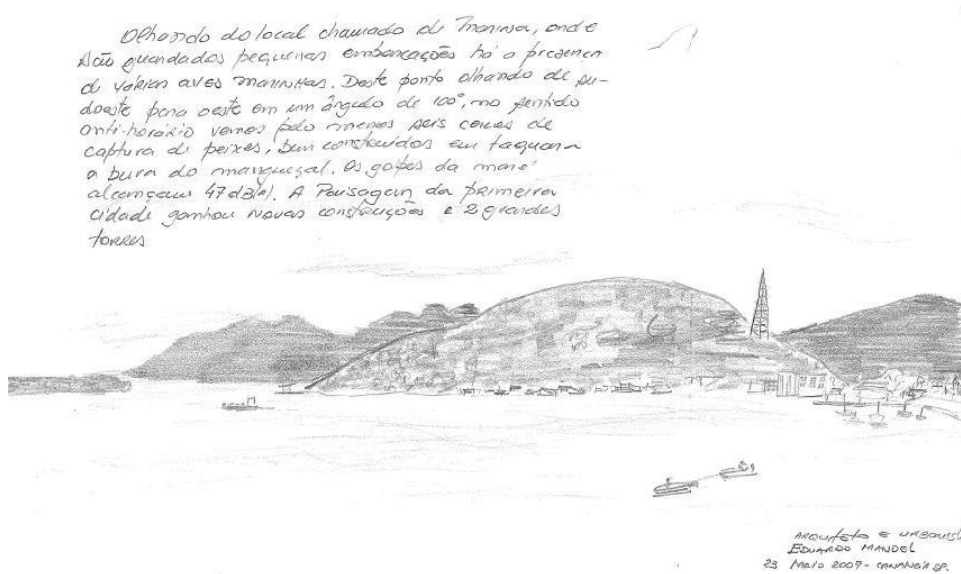 Olhando do local chamado de Marina, onde
são guardadas pequenas embarcações há a presença
de várias aves marinhas. Deste ponto olhando de su-
doeste para oeste em um ângulo de 100°, no sentido
anti-horário vemos pelo menos seis cercos de
captura de peixes, bem construídos em taquara
a beira do manguezal. Os golpes da maré
alcançam 47 dB(A). A Paisagem da primeira
cidade ganhou novas construções e 2 grandes
torres
ARQUITETO E URBANISTA
EDUARDO MANDEL
23 MAIO 2007 - CANANÉIA SP.